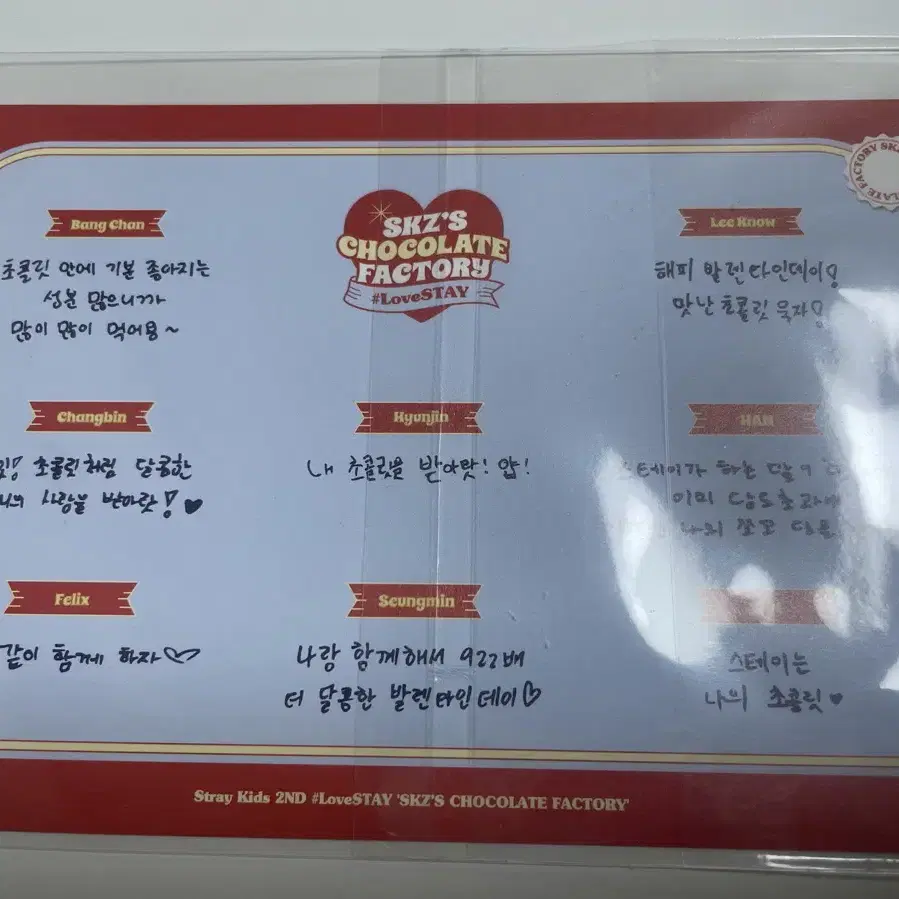 FACTORY
SKZ'S
CHOCOLATE
FACTORY
#LoveSTAY
Bang Chan
초콜릿 안에 기분 좋아지는
성분 많으니까
많이 많이 먹어용~
Lee Know
해피 발렌타인데이!
맛난 초콜릿 윽자!
Changbin
초콜릿처럼 달콤한
사랑을 받아랏! ♥
Hyunjin
내 초콜릿을 받아랏! 얍!
HAN
스테이가 하는
이미
나의 쪼꼬
Felix
같이 함께 하자♡
Seungmin
나랑 함께해서 922배
더 달콤한 발렌타인데이♡
스테이는
나의 초콜릿♥
Stray Kids 2ND #LoveSTAY 'SKZ'S CHOCOLATE FACTORY'